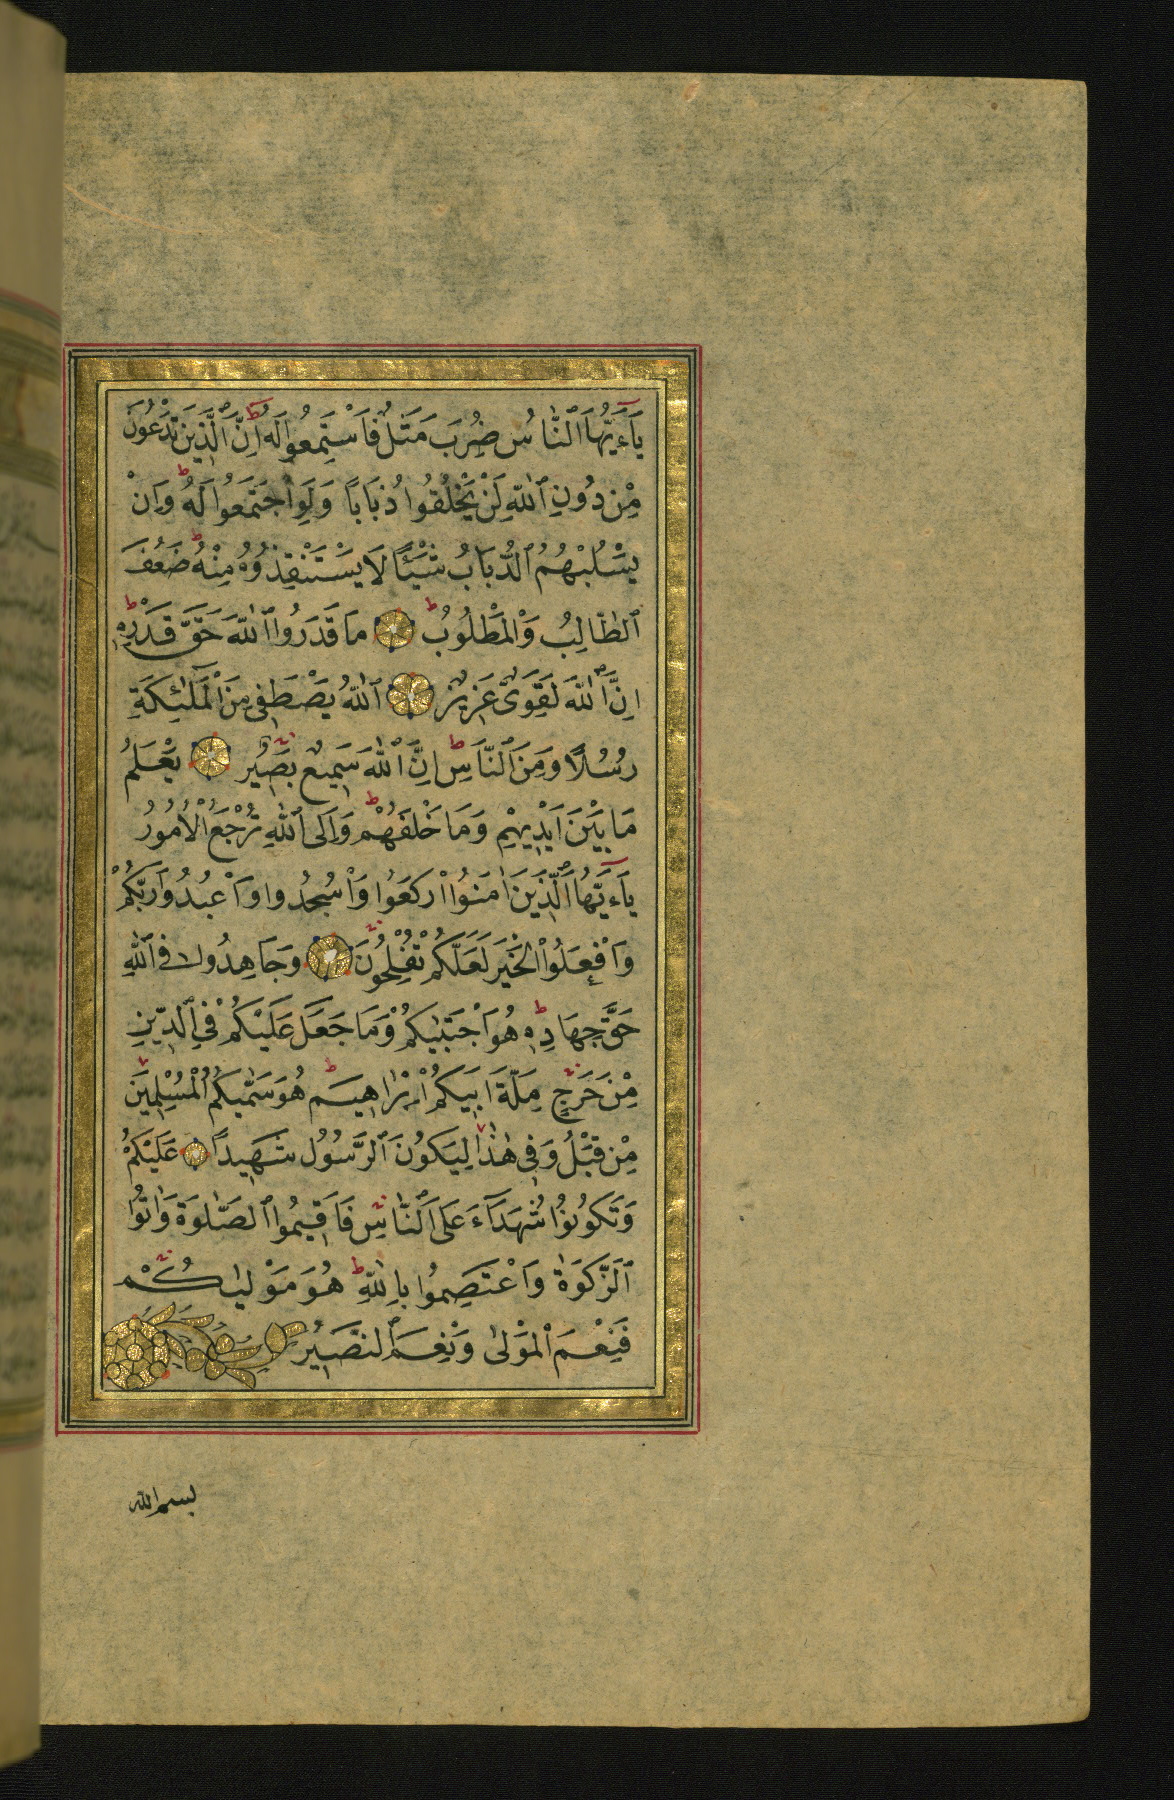 يَاءَيُّهَا ٱلنَّاسُ ضُرِبَ مَثَلٌ فَاسْتَمِعُوا لَهُ اِنَّ ٱلَّذِينَ تَدْعُونَ
مِنْ دُونِ ٱللّٰهِ لَنْ يَخْلُقُوا ذُبَابًا وَلَوِ اجْتَمَعُوا لَهُ وَاِنْ
يَسْلُبْهُمُ ٱلذُّبَابُ شَيْئًا لَا يَسْتَنْقِذُوهُ مِنْهُ ضَعُفَ
ٱلطَّالِبُ وَالْمَطْلُوبُ مَا قَدَرُوا ٱللّٰهَ حَقَّ قَدْرِهِ
اِنَّ ٱللّٰهَ لَقَوِىٌّ عَزِيزٌ ٱللّٰهُ يَصْطَفِى مِنَ الْمَلٰئِكَةِ
رُسُلًا وَمِنَ ٱلنَّاسِ اِنَّ ٱللّٰهَ سَمِيعٌ بَصِيرٌ يَعْلَمُ
مَا بَيْنَ اَيْدِيهِمْ وَمَا خَلْفَهُمْ وَاِلَى ٱللّٰهِ تُرْجَعُ الْاُمُورُ
يَاءَيُّهَا ٱلَّذِينَ اٰمَنُوا ارْكَعُوا وَاسْجُدُوا وَاعْبُدُوا رَبَّكُمْ
وَافْعَلُوا الْخَيْرَ لَعَلَّكُمْ تُفْلِحُونَ وَجَاهِدُوا فِى ٱللّٰهِ
حَقَّ جِهَادِهِ هُوَ اجْتَبٰيكُمْ وَمَا جَعَلَ عَلَيْكُمْ فِى ٱلدِّينِ
مِنْ حَرَجٍ مِلَّةَ اَبِيكُمْ اِبْرَاهِيمَ هُوَ سَمّٰيكُمُ الْمُسْلِمِينَ
مِنْ قَبْلُ وَفِى هٰذَا لِيَكُونَ ٱلرَّسُولُ شَهِيدًا عَلَيْكُمْ
وَتَكُونُوا شُهَدَاءَ عَلَى ٱلنَّاسِ فَاَقِيمُوا ٱلصَّلٰوةَ وَاٰتُوا
ٱلزَّكٰوةَ وَاعْتَصِمُوا بِاللّٰهِ هُوَ مَوْلٰيكُمْ
فَنِعْمَ الْمَوْلٰى وَنِعْمَ ٱلنَّصِيرُ
بسم الله